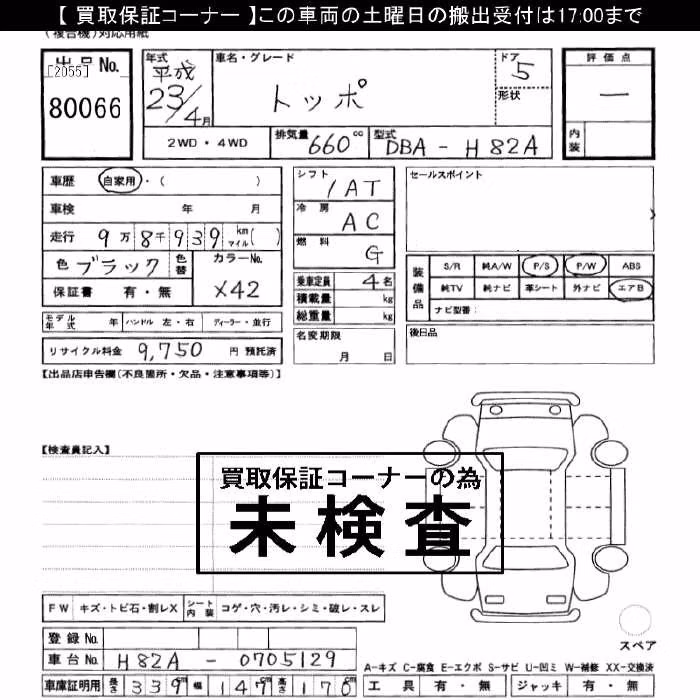 【 買取保証コーナー 】この車両の土曜日の搬出受付は17:00まで
(複合機)対応用紙
出品No. [2055] 80066
年式 平成 23/4月
車名・グレード トッポ
ドア 5
形状
評価点 —
内装
2WD・4WD
排気量 660cc
型式 DBA - H82A
車歴 自家用・( )
車検 年 月
走行 9万8千939 km マイル( )
色 ブラック 色替 カラーNo. X42
保証書 有・無
シフト IAT
冷房 AC
燃料 G
乗車定員 4名
積載量 kg
総重量 kg
セールスポイント
装備品 S/R 純A/W P/S P/W ABS
純TV 純ナビ 革シート 外ナビ エアB
ナビ型番:
モデル年式 年 ハンドル 左・右 ディーラー・並行
リサイクル料金 9,750 円 預託済
名変期限 月 日
後日品
【出品店申告欄(不良箇所・欠品・注意事項等)】
【検査員記入】
買取保証コーナーの為
未検査
FW キズ・トビ石・割レX シート内装 コゲ・穴・汚レ・シミ・破レ・スレ
スペア
登録No.
車台No. H82A - 0705129
A-キズ C-腐食 E-エクボ S-サビ U-凹ミ W-補修 XX-交換済
車庫証明用 長さ 339cm 幅 147cm 高さ 170cm
工具 有・無 ジャッキ 有・無